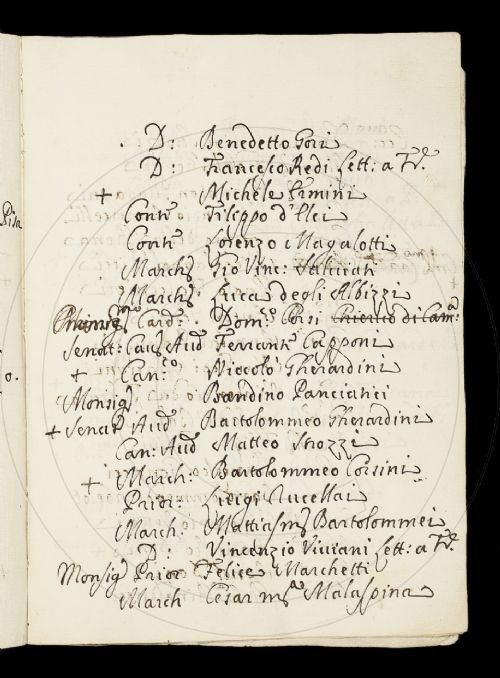 D: Benedetto Gori
D: Francesco Redi Lett: a Fr.e
+ Michele Ermini
Conte Filippo d'Elci
Conte Lorenzo Magalotti
March.e Gio Vinc: Salviati
March.e Luca degli Albizzi
Card: Dom.co Corsi Chierico di Cam.a
Senat: Cav. Aud Ferrante Capponi
+ Can.co Niccolò Gherardini
Monsig.r Bandino Panciatici
+ Senat Aud.e Bartolommeo Gherardini
Can: Aud Matteo Strozzi
+ March: Bartolommeo Corsini
Prior: Luigi Rucellai
March: Mattias m.a Bartolommei
D: Vincenzio Viviani Lett: a Fr.e
Monsig.r Prior Felice Marchetti
March Cesar m.a Malaspina
Pisa
o.